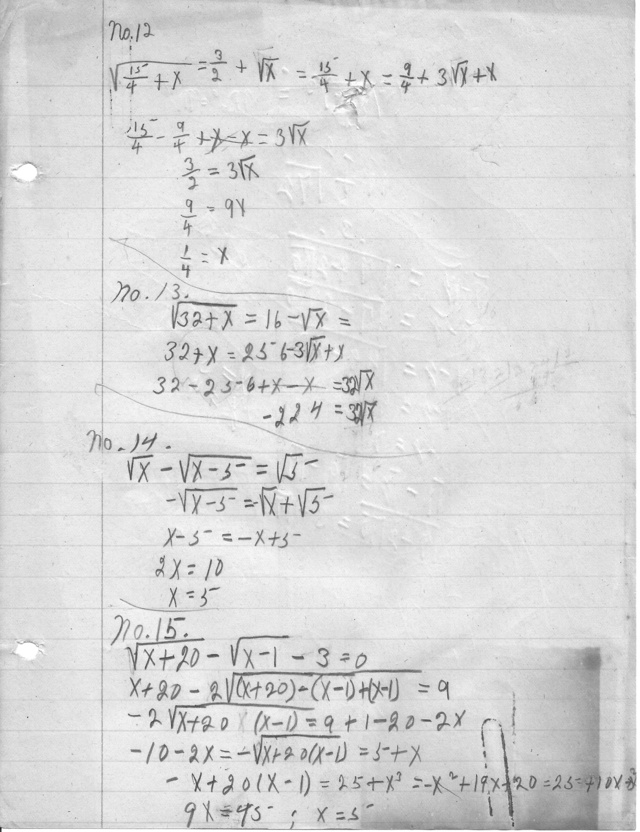 No.12
√(15/4 + x) = 3/2 + √x = 15/4 + x = 9/4 + 3√x + x
15/4 - 9/4 + x - x = 3√x
3/2 = 3√x
9/4 = 9x
1/4 = x
No. 13.
√(32+x) = 16 - √x =
32+x = 256-3√x+x
32-256+x-x = 32√x
-224 = 32√x
No. 14.
√x - √(x-5) = √5
-√(x-5) = √x + √5
x-5 = -x+5
2x = 10
x = 5
No. 15.
√(x+20) - √(x-1) - 3 = 0
x+20 - 2√((x+20)-(x-1)+(x-1)) = 9
-2√(x+20 x (x-1)) = 9+1-20-2x
-10-2x = -√(x+20(x-1)) = 5+x
- x+20(x-1) = 25+x³ = -x²+19x+20 = 25+10x
9x = 45 ; x = 5